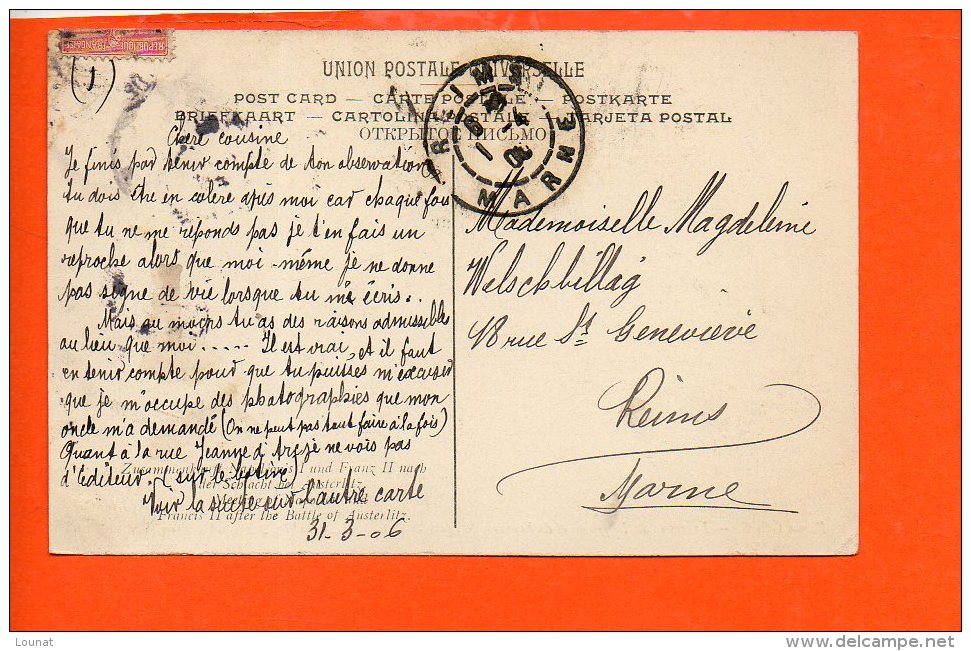 REPUBLIQUE FRANÇAISE
(1)
UNION POSTALE UNIVERSELLE
POST CARD — CARTE POSTALE — POSTKARTE
BRIEFKAART — CARTOLINA POSTALE — TARJETA POSTAL
ОТКРЫТОЕ ПИСЬМО
REIMS
MARNE
Chère cousine
Je finis par tenir compte de ton observation
tu dois être en colère après moi car chaque fois
que tu ne me réponds pas je t'en fais un
reproche alors que moi-même je ne donne
pas signe de vie lorsque tu m'écris..
Mais au moins tu as des raisons admissibles
au lieu que moi ..... Il est vrai, et il faut
en tenir compte pour que tu puisses m'excuser
que je m'occupe des photographies que mon
oncle m'a demandé (On ne peut pas tout faire à la fois)
Quant à la rue Jeanne d'Arc je ne vois pas
d'éditeur. (sur le
Voir la suite sur l'autre carte
31-3-06
Zusammenkunft Napoleons I und Franz II nach
der Schlacht bei Austerlitz.
Meeting of Napoleon and
Francis II after the Battle of Austerlitz.
Mademoiselle Magdeleine
Welschbillig
18 rue St Geneviève
Reims
Marne
Lounat
www.delcampe.net